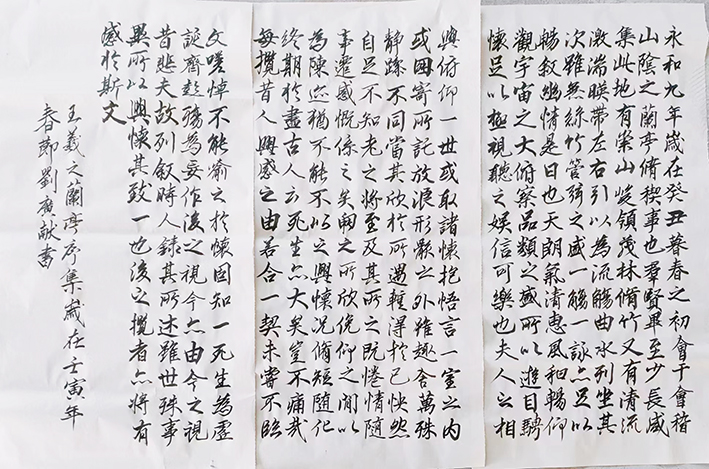 永和九年歲在癸丑暮春之初會于會稽
山陰之蘭亭脩稧事也羣賢畢至少長咸
集此地有崇山峻領茂林脩竹又有清流
激湍暎帶左右引以為流觴曲水列坐其
次雖無絲竹管弦之盛一觴一詠亦足以
暢叙幽情是日也天朗氣清惠風和暢仰
觀宇宙之大俯察品類之盛所以遊目騁
懷足以極視聽之娛信可樂也夫人之相
與俯仰一世或取諸懷抱悟言一室之內
或因寄所託放浪形骸之外雖趣舍萬殊
静躁不同當其欣於所遇輙得於己快然
自足不知老之將至及其所之既惓情隨
事遷感慨係之矣向之所欣俛仰之間以
為陳迹猶不能不以之興懷况脩短隨化
終期於盡古人云死生亦大矣豈不痛哉
每攬昔人興感之由若合一契未嘗不臨
文嗟悼不能喻之於懷固知一死生為虛
誕齊彭殤為妄作後之視今亦由今之視
昔悲夫故列叙時人錄其所述雖世殊事
異所以興懷其致一也後之攬者亦將有
感於斯文
王羲之蘭亭序集歲在壬寅年
春節劉廣献書